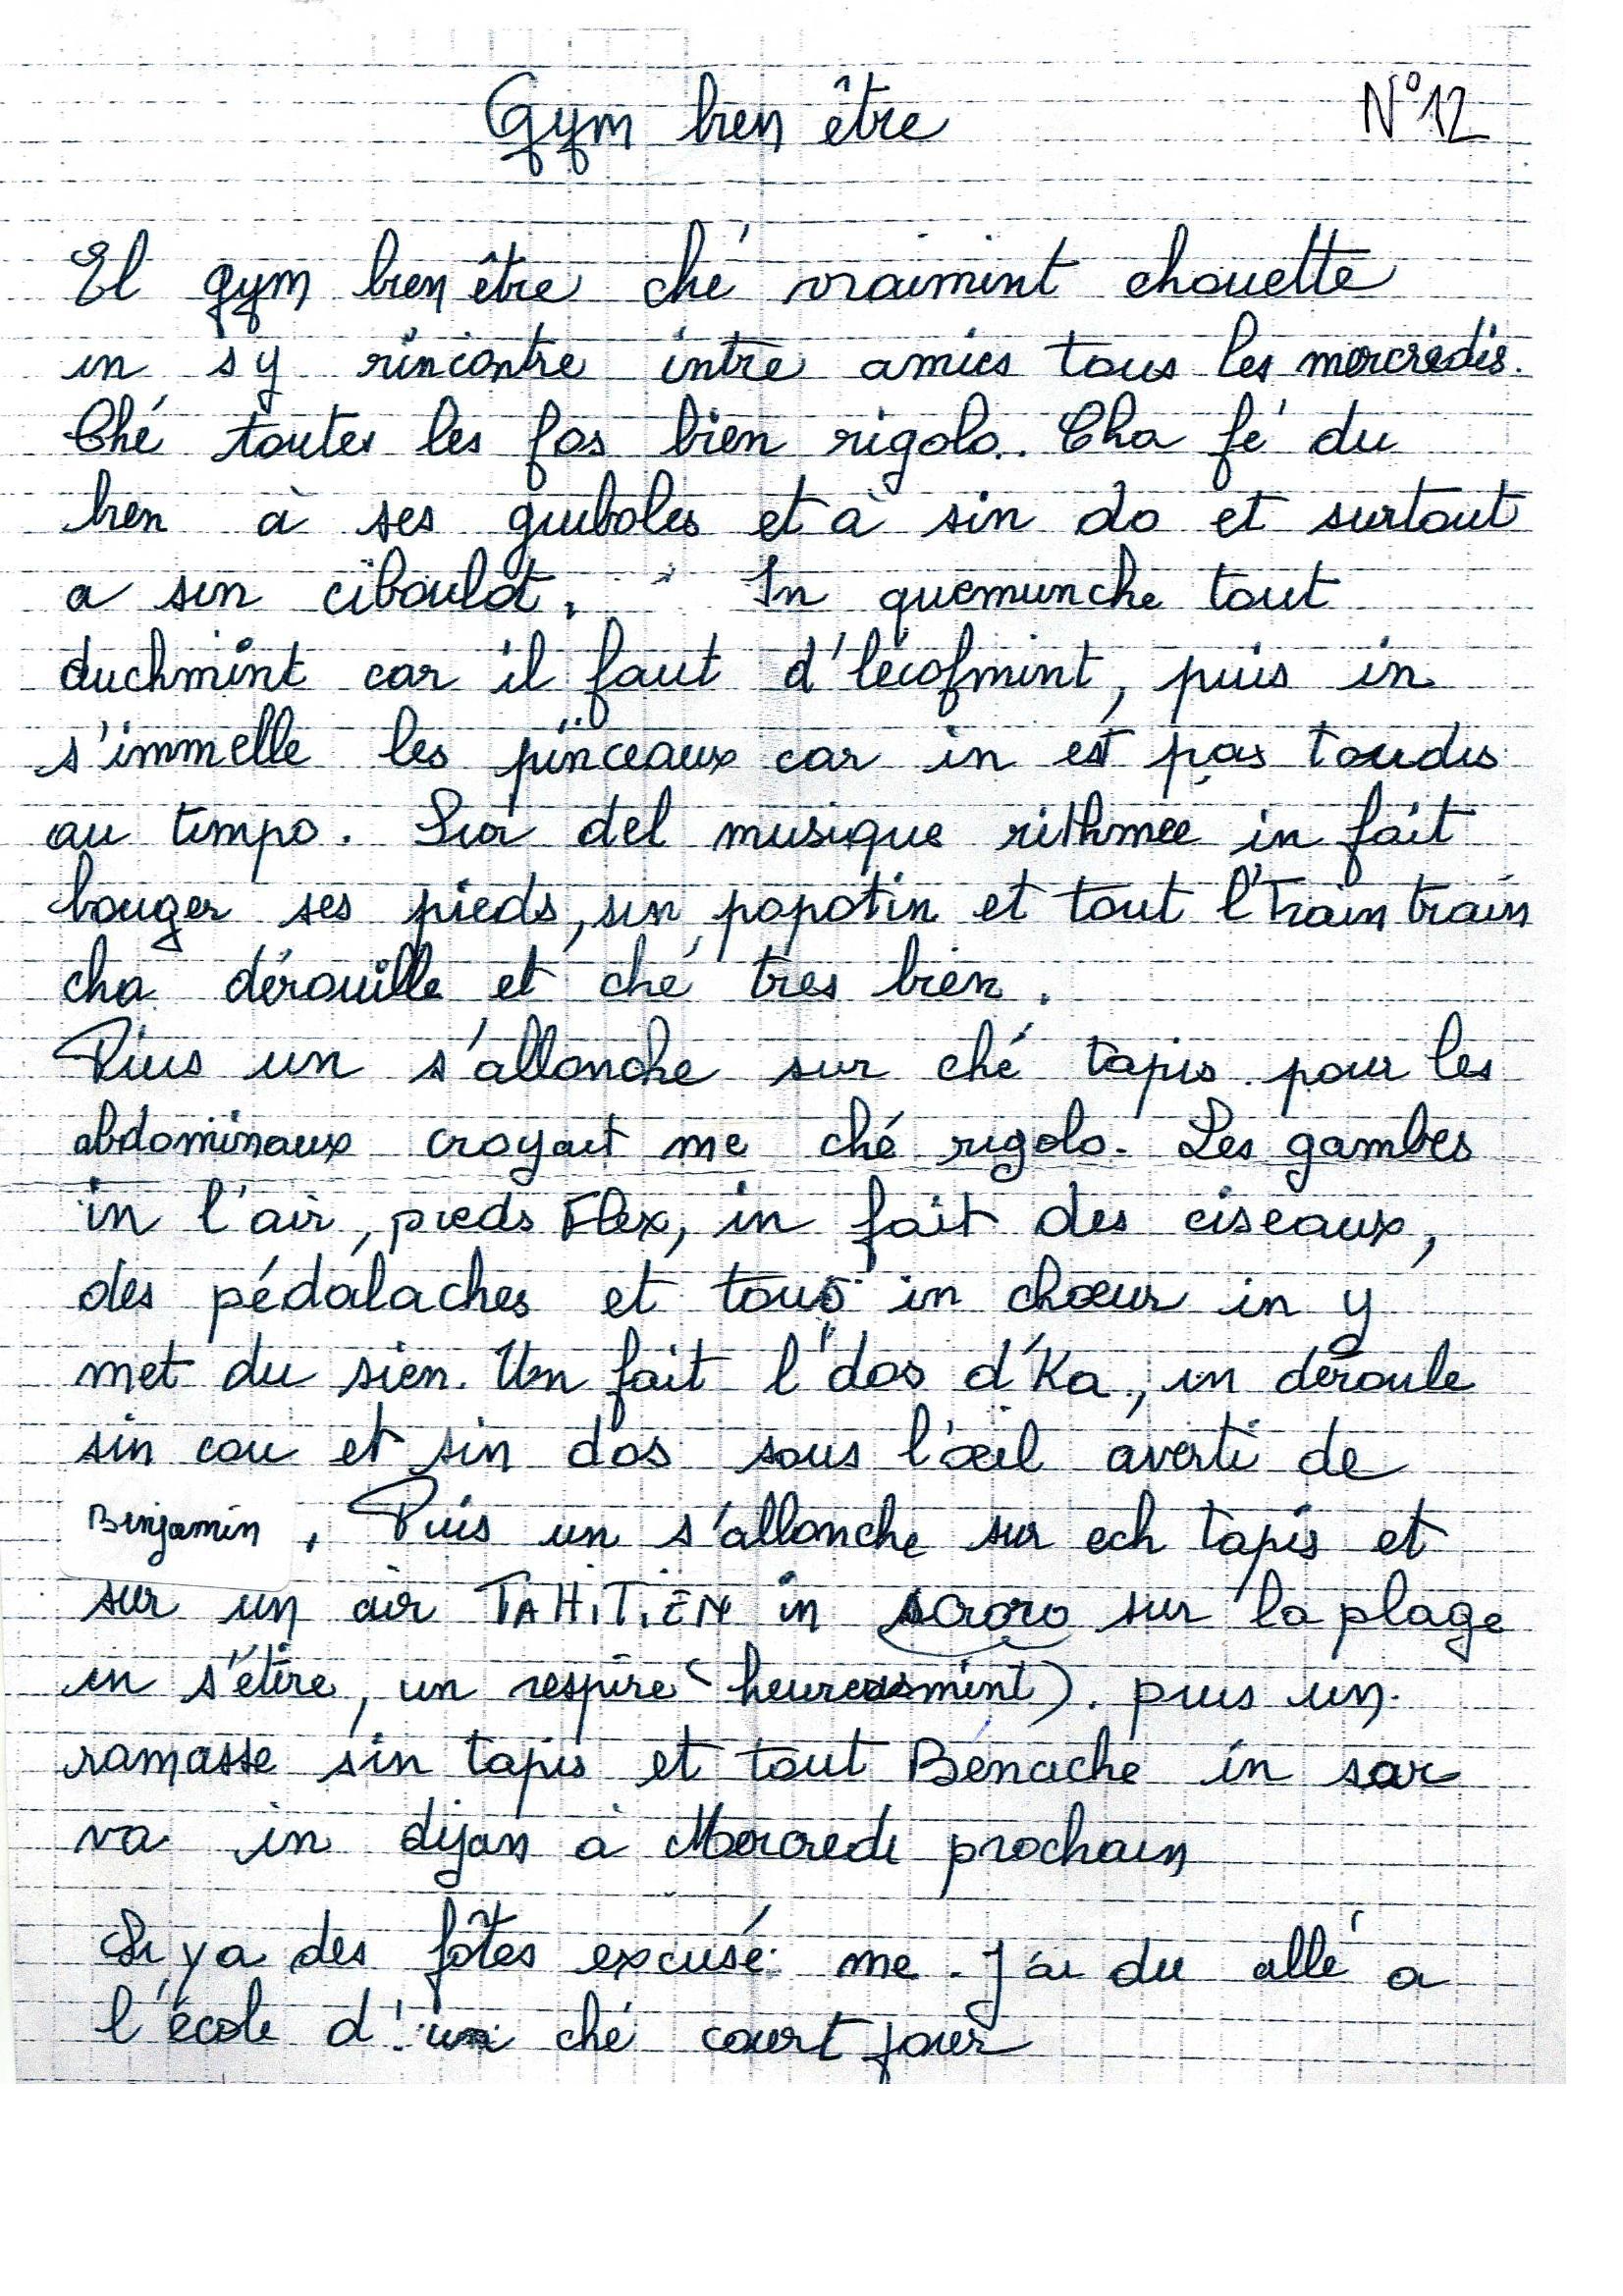 Gym bien être
N°12
El gym bien être ché vraimint chouette
in s'y rincontre intre amies tous les mercredis.
Ché toutes les fos bien rigolo.. Cha fé du
bien à ses guiboles et à sin do et surtout
a sin ciboulot. In quemunche tout
duchmint car il faut d'lécofmint, puis in
s'immelle les pinceaux car in est pas toudis
au timpo. Sur del musique rithmée in fait
bouger ses pieds, sin popotin et tout l'train train
cha dérouille et ché tres bien.
Pius un s'allonche sur ché tapis pour les
abdominaux croyait me ché rigolo. Les gambes
in l'air, pieds Flex, in fait des ciseaux,
des pédalaches et tous in chœur in y
met du sien. Un fait l'dos d'Ka, in déroule
sin cou et sin dos sous l'œil averti de
Binjamin. Puis un s'allonche sur ech tapis et
sur un air TAHITIEN in sCroro sur la plage
in s'étire, un respire (heureusmint). puis un
ramasse sin tapis et tout Bénache in sar
va in dijan à Mercredi prochain
Si ya des fôtes excusé me. J'ai du allé a
l'école d'un ché court jour